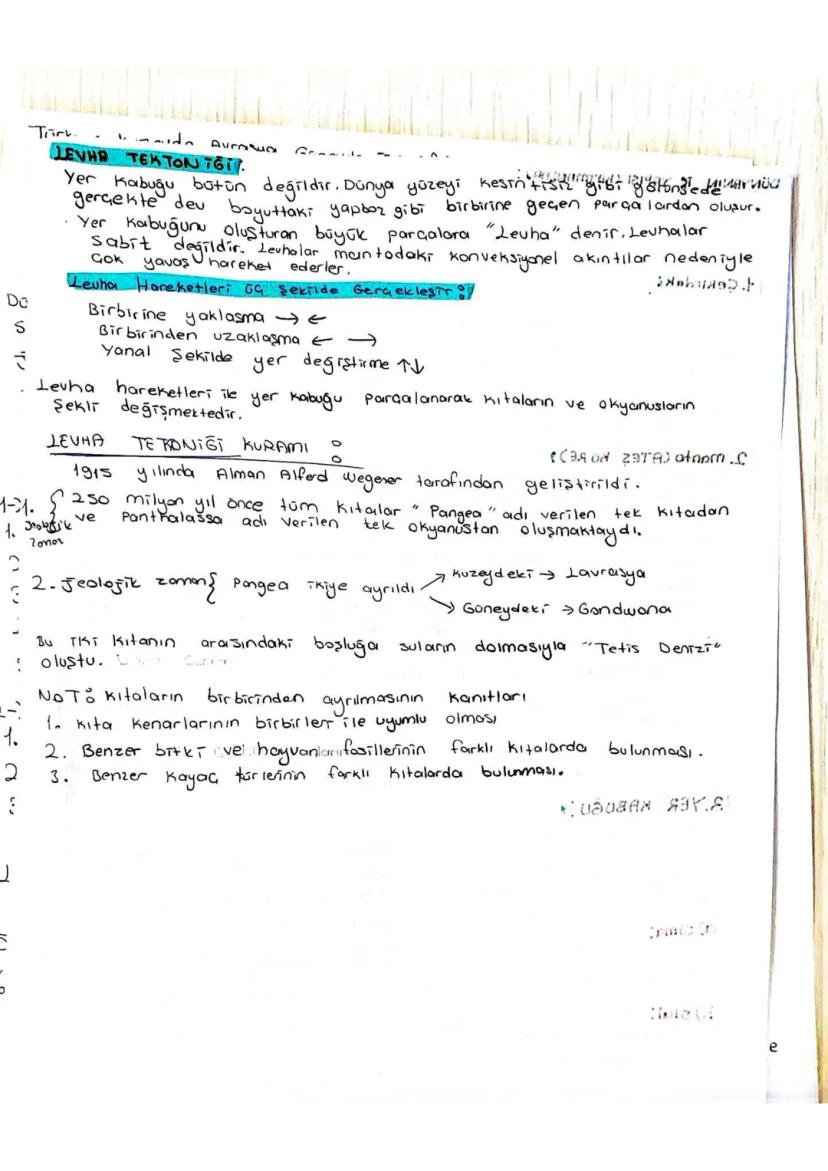 LEVHA TEKTONİĞİ:
Yer kabuğu bütün değildir. Dünya yüzeyi kesintisiz gibi görünsede
gerçekte dev boyuttaki yapboz gibi birbirine geçen parçalardan oluşur.
· Yer kabuğunu oluşturan büyük parçalara "Levha" denir. Levhalar
sabit değildir. Levhalar mantodaki konveksiyonel akıntılar nedeniyle
çok yavaş hareket ederler.
Levha Hareketleri üç şekilde Gerçekleşir:
Birbirine yaklaşma → ←
Birbirinden uzaklaşma ← →
Yanal şekilde yer değiştirme ↑↓
. Levha hareketleri ile yer kabuğu parçalanarak kıtaların ve okyanusların
şekli değişmektedir.
LEVHA TEKTONİĞİ KURAMI :
1915 yılında Alman Alferd Wegener tarafından geliştirildi.
1. Jeolojik zaman { 250 milyon yıl önce tüm kıtalar "Pangea" adı verilen tek kıtadan
ve Panthalassa adı verilen tek okyanustan oluşmaktaydı.
2. Jeolojik zaman { Pangea ikiye ayrıldı
Kuzeydeki → Lavrasya
Güneydeki → Gondwana
Bu iki kıtanın arasındaki boşluğa suların dolmasıyla "Tetis Denizi"
oluştu.
NOT: Kıtaların birbirinden ayrılmasının kanıtları
1. Kıta kenarlarının birbirleri ile uyumlu olması
2. Benzer bitki ve hayvanların fosillerinin farklı kıtalarda bulunması.
3. Benzer kayaç türlerinin farklı kıtalarda bulunması.